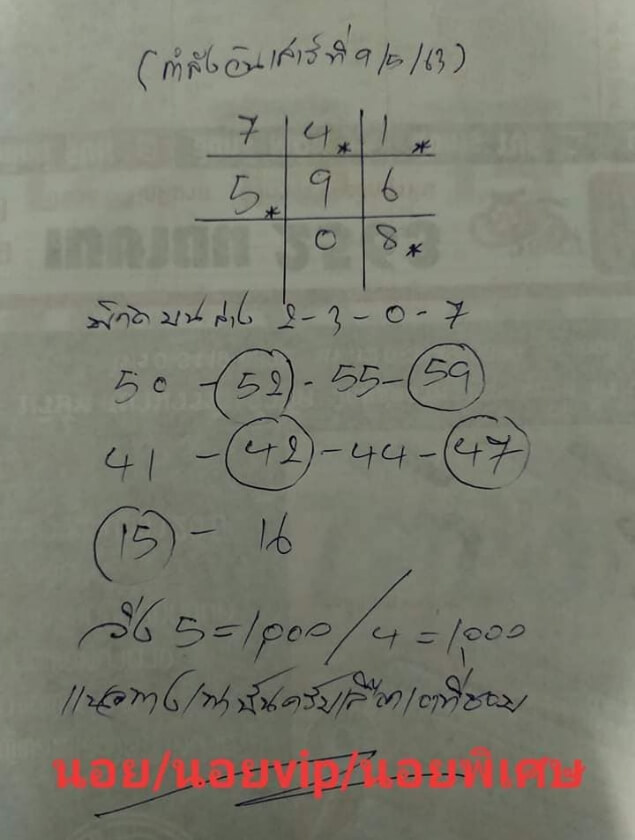 (กำลังวันเสาร์ที่ 9/5/63)
7 4* 1*
5* 9 6
0 8*
พิกัด บน ล่าง 2-3-0-7
50 - 52 - 55 - 59
41 - 42 - 44 - 47
15 - 16
วิ่ง 5=1,000 / 4=1,000
แนวทางเท่านั้นครับเลือกเอาที่ชอบ
นอย/นอยvip/นอยพิเศษ